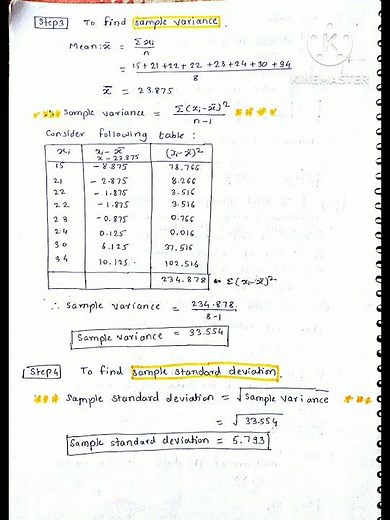 Step 3 To find sample variance.
Mean: x̄ = Σxi / n
= 15+21+22+22+23+24+30+34 / 8
x̄ = 23.875
KINEMASTER
*** Sample variance = Σ(xi-x̄)² / n-1 ****
Consider following table :
xi xi - x̄ (xi-x̄)²
x-23.875
15 -8.875 78.766
21 -2.875 8.266
22 -1.875 3.516
22 -1.875 3.516
23 -0.875 0.766
24 0.125 0.016
30 6.125 37.516
34 10.125 102.516
234.878 ← Σ(xi-x̄)²
∴ Sample variance = 234.878 / 8-1
Sample variance = 33.554
Step 4 To find sample standard deviation.
*** Sample standard deviation = √Sample variance ***
= √33.554
Sample standard deviation = 5.793